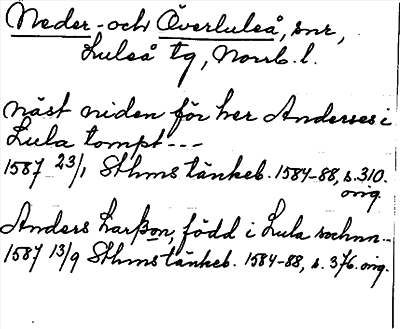 Neder- och Överluleå, snr,
Luleå tg, Norrb. l.
näst niden för her Anderses i
Lula tompt---
1587 23/1 Sthms tänkeb. 1584-88, s. 310.
orig.
Anders Larßon, född i Lula sochnn--
1587 13/9 Sthms tänkeb. 1584-88, s. 376. orig.